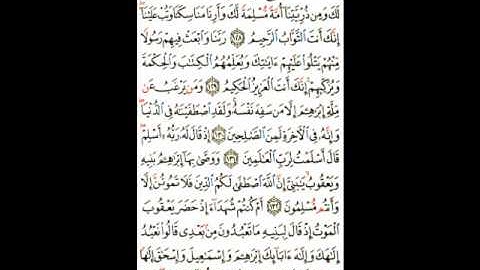 لَكَ وَمِن ذُرِّيَّتِنَآ أُمَّةً مُّسْلِمَةً لَّكَ وَأَرِنَا مَنَاسِكَنَا وَتُبْ عَلَيْنَآ
إِنَّكَ أَنتَ ٱلتَّوَّابُ ٱلرَّحِيمُ ١٢٨ رَبَّنَا وَٱبْعَثْ فِيهِمْ رَسُولًا
مِّنْهُمْ يَتْلُوا۟ عَلَيْهِمْ ءَايَٰتِكَ وَيُعَلِّمُهُمُ ٱلْكِتَٰبَ وَٱلْحِكْمَةَ
وَيُزَكِّيهِمْ إِنَّكَ أَنتَ ٱلْعَزِيزُ ٱلْحَكِيمُ ١٢٩ وَمَن يَرْغَبُ عَن
مِّلَّةِ إِبْرَٰهِـۧمَ إِلَّا مَن سَفِهَ نَفْسَهُۥ وَلَقَدِ ٱصْطَفَيْنَٰهُ فِى ٱلدُّنْيَا
وَإِنَّهُۥ فِى ٱلْءَاخِرَةِ لَمِنَ ٱلصَّٰلِحِينَ ١٣٠ إِذْ قَالَ لَهُۥ رَبُّهُۥٓ أَسْلِمْ
قَالَ أَسْلَمْتُ لِرَبِّ ٱلْعَٰلَمِينَ ١٣١ وَوَصَّىٰ بِهَآ إِبْرَٰهِـۧمُ بَنِيهِ
وَيَعْقُوبُ يَٰبَنِىَّ إِنَّ ٱللَّهَ ٱصْطَفَىٰ لَكُمُ ٱلدِّينَ فَلَا تَمُوتُنَّ إِلَّا
وَأَنتُم مُّسْلِمُونَ ١٣٢ أَمْ كُنتُمْ شُهَدَآءَ إِذْ حَضَرَ يَعْقُوبَ
ٱلْمَوْتُ إِذْ قَالَ لِبَنِيهِ مَا تَعْبُدُونَ مِنۢ بَعْدِى قَالُوا۟ نَعْبُدُ
إِلَٰهَكَ وَإِلَٰهَ ءَابَآئِكَ إِبْرَٰهِـۧمَ وَإِسْمَٰعِيلَ وَإِسْحَٰقَ إِلَٰهًا